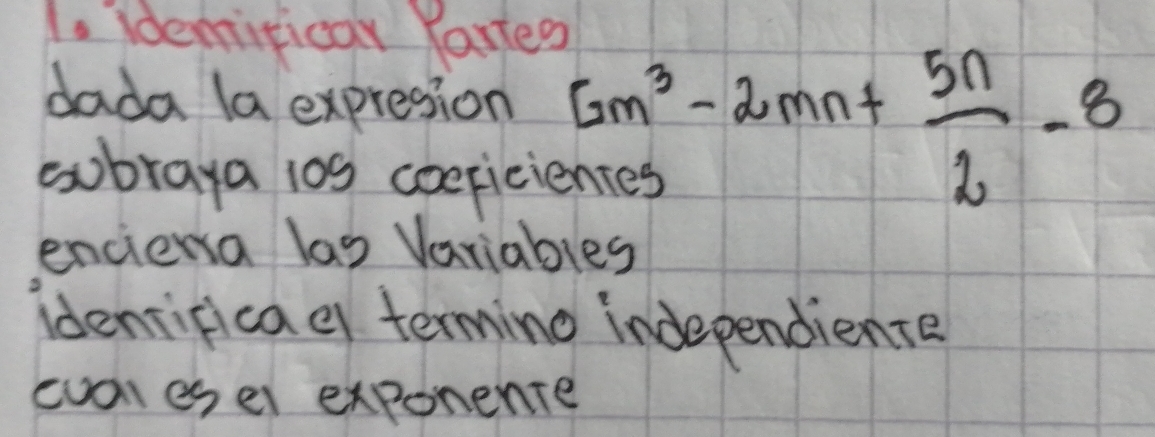 1. idemificar Partes
dada la expresion 5m³ - 2mn + 5n/2 - 8
subraya los coeficientes
encierra las Variables
identifica el termino independiente
cual es el exponente